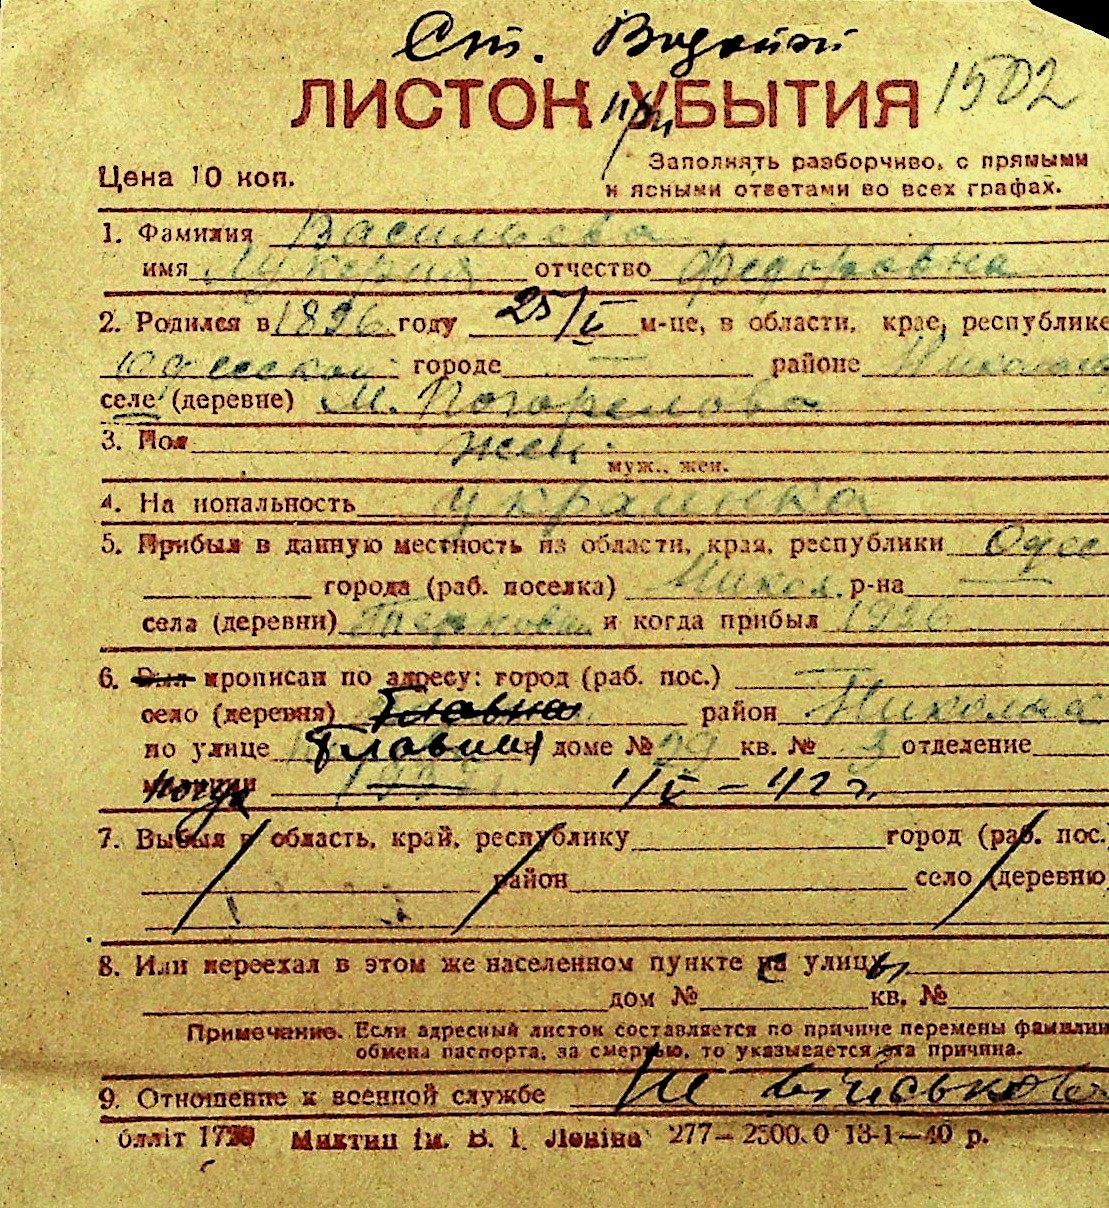 Ст.
ЛИСТОК УБЫТИЯ 1502
Цена 10 коп.
Заполнять разборчиво, с прямыми
и ясными ответами во всех графах.
1. Фамилия Васильева
имя Лукерия отчество Федоровна
2. Родился в 1896 году 25/V м-це, в области, крае, республике
Одесской городе — районе
селе (деревне) М. Погорелова
3. Пол жен.
муж., жен.
4. На иональность украинка
5. Прибыл в данную местность из области, края, республики Одес
города (раб. поселка) Никол. р-на —
села (деревни) и когда прибыл 1926
6. Был прописан по адресу: город (раб. пос.)
село (деревня) Главная район
по улице Главная доме № 29 кв. № 3 отделение
милиции
7. Выбыл в область, край, республику город (раб. пос.
район село (деревню
8. Или переехал в этом же населенном пункте на улицу
дом № кв. №
Примечание. Если адресный листок составляется по причине перемены фамилии
обмена паспорта, за смертью, то указывается эта причина.
9. Отношение к военной службе
блліт 1720 Миктип ім. В. І. Леніна 277—2500.0 13-1—40 р.